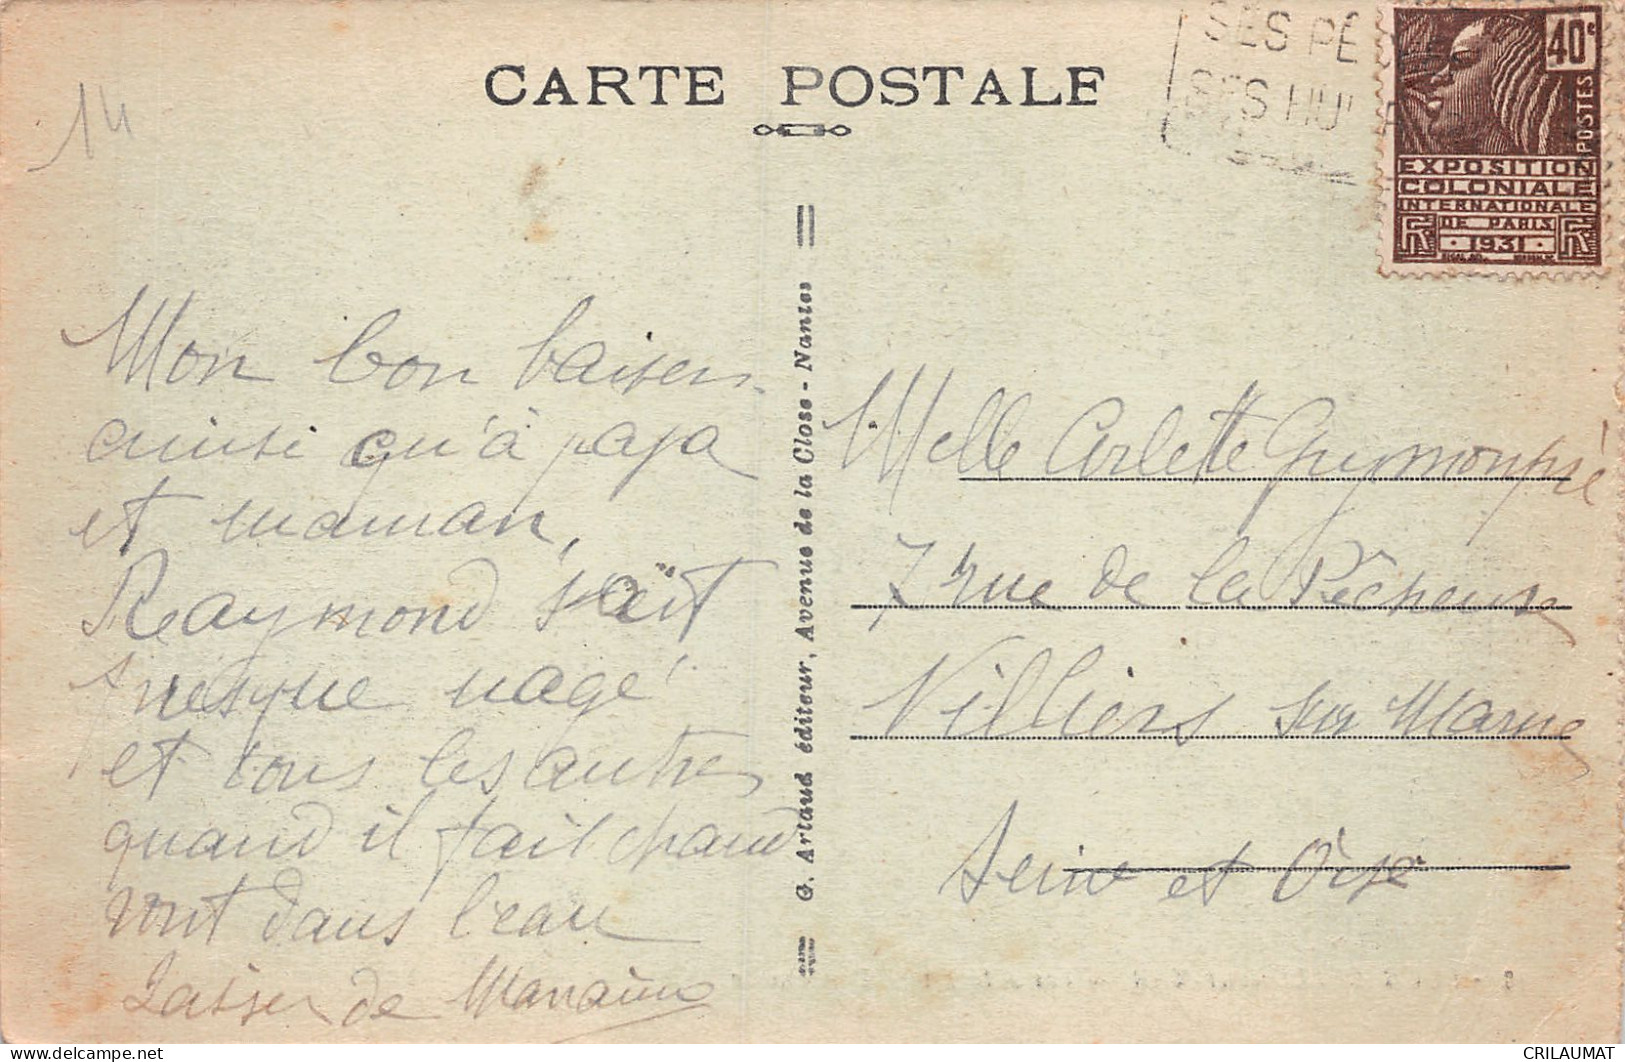 14
CARTE POSTALE
SES PÊ
SES HUI
40c
POSTES
EXPOSITION
COLONIALE
INTERNATIONALE
DE PARIS
1931
Mon bon baisers
ainsi qu'à papa
et maman,
Raymond sait
presque nagé
et tous les autres
quand il fait chaud
vont dans l'eau
Baiser de
G. Artaud éditeur, Avenue de la Close - Nantes
Melle Arlette Guymonpré
7 rue de la Pêcheuse
Villiers sur Marne
Seine et Oise
CRILAUMAT
delcampe.net